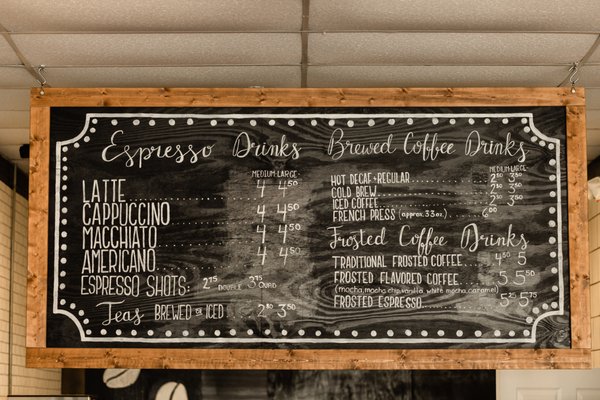 Espresso Drinks
MEDIUM-LARGE-
LATTE 4 4.50
CAPPUCCINO 4 4.50
MACCHIATO 4 4.50
AMERICANO 4 4.50
ESPRESSO SHOTS: 2.75 DOUBLE 3.75 QUAD
Teas BREWED OR ICED 2.80 3.50
Brewed Coffee Drinks
MEDIUM LARGE
HOT DECAF + REGULAR 2.50 3.50
COLD BREW 2.50 3.50
ICED COFFEE 2.50 3.50
FRENCH PRESS (approx. 33oz.) 6.00
Frosted Coffee Drinks
TRADITIONAL FROSTED COFFEE 4.50 5
FROSTED FLAVORED COFFEE 5 5.50
(mocha, mocha chip, vanilla, white mocha, caramel)
FROSTED ESPRESSO 5.25 5.75